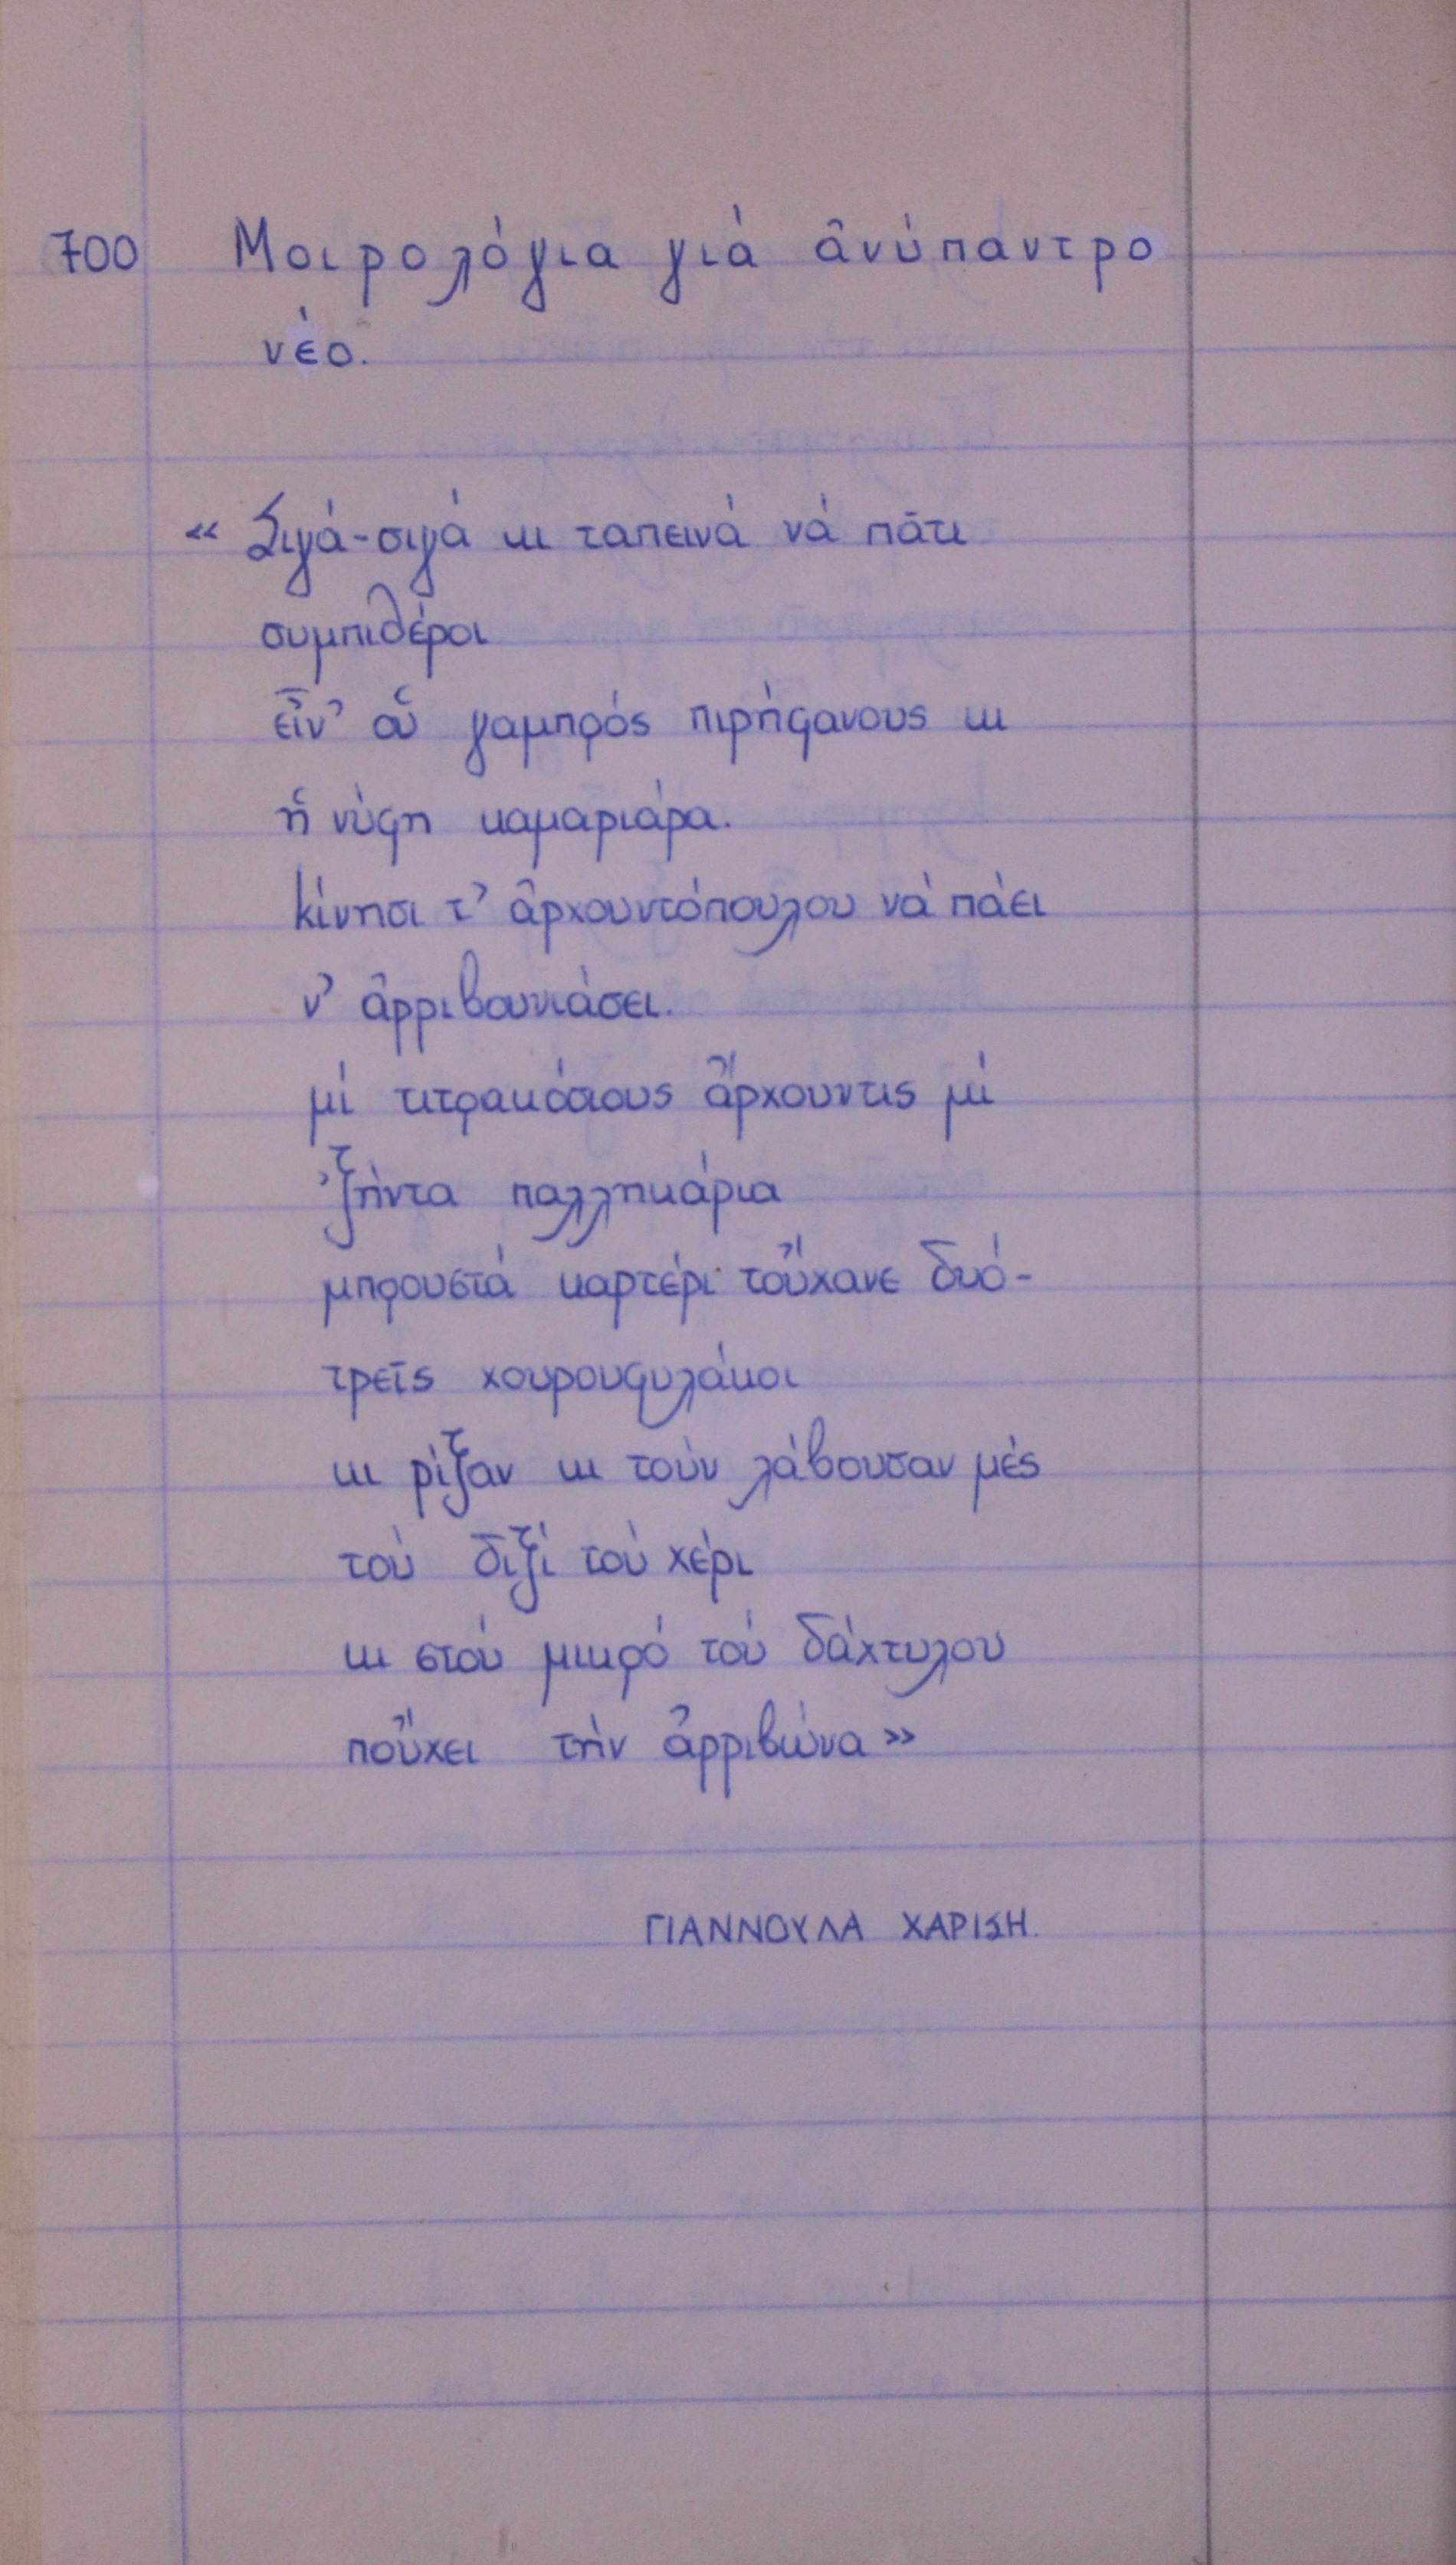 700 Μοιρολόγια γιά ἀνύπαντρο
νέο.
« Σιγά-σιγά κι ταπεινά νά πᾶτι
συμπιθέροι
εἶν' οὗ γαμπρός πιρήφανους κι
ἡ νύφη καμαριάρα.
κίνησι τ' ἀρχουντόπουλου νά πάει
ν' ἀρριβουνιάσει.
μί τιτρακόσιους ἄρχουντις μί
'ξήντα παλληκάρια
μπρουστά καρτέρι τοὔχανε δυό-
τρεῖς χουρουφυλάκοι
κι ρίξαν κι τούν λάβουσαν μές
τού διξί τού χέρι
κι στού μικρό τού δάχτυλου
ποὔχει τήν ἀρριβώνα »
ΓΙΑΝΝΟΥΛΑ ΧΑΡΙΣΗ.